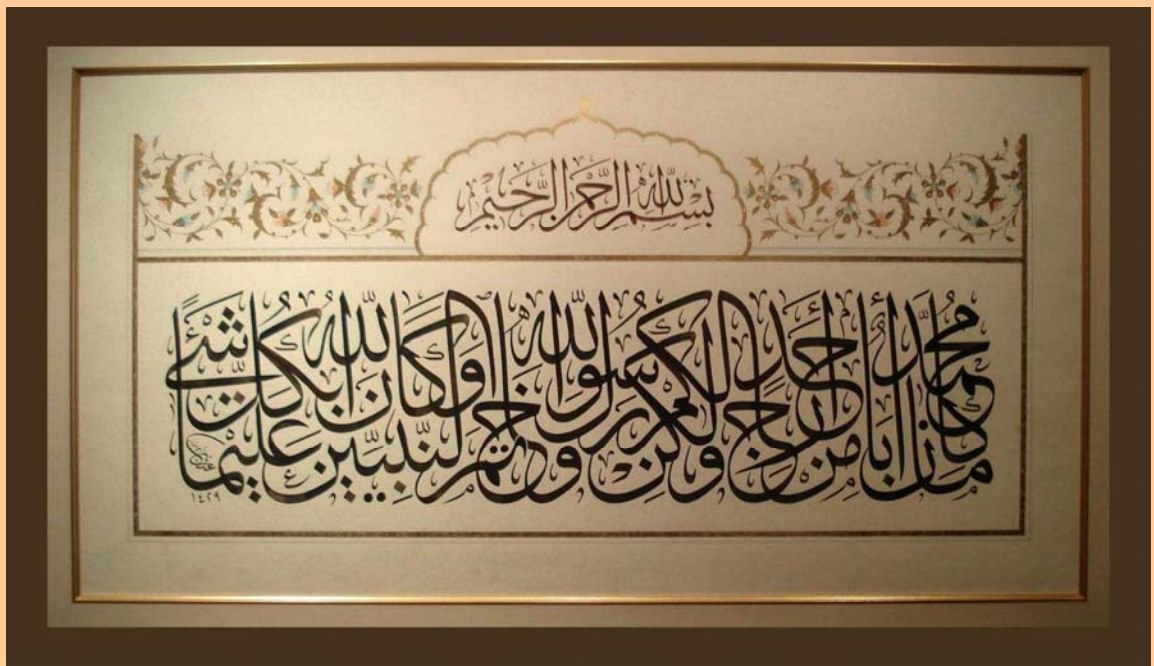 بِسْمِ اللهِ الرَّحْمٰنِ الرَّحِيْمِ
مَا كَانَ مُحَمَّدٌ أَبَا أَحَدٍ مِنْ رِجَالِكُمْ وَلٰكِنْ رَسُولَ اللهِ وَخَاتَمَ النَّبِيِّينَ وَكَانَ اللهُ بِكُلِّ شَيْءٍ عَلِيمًا
١٤٢٩